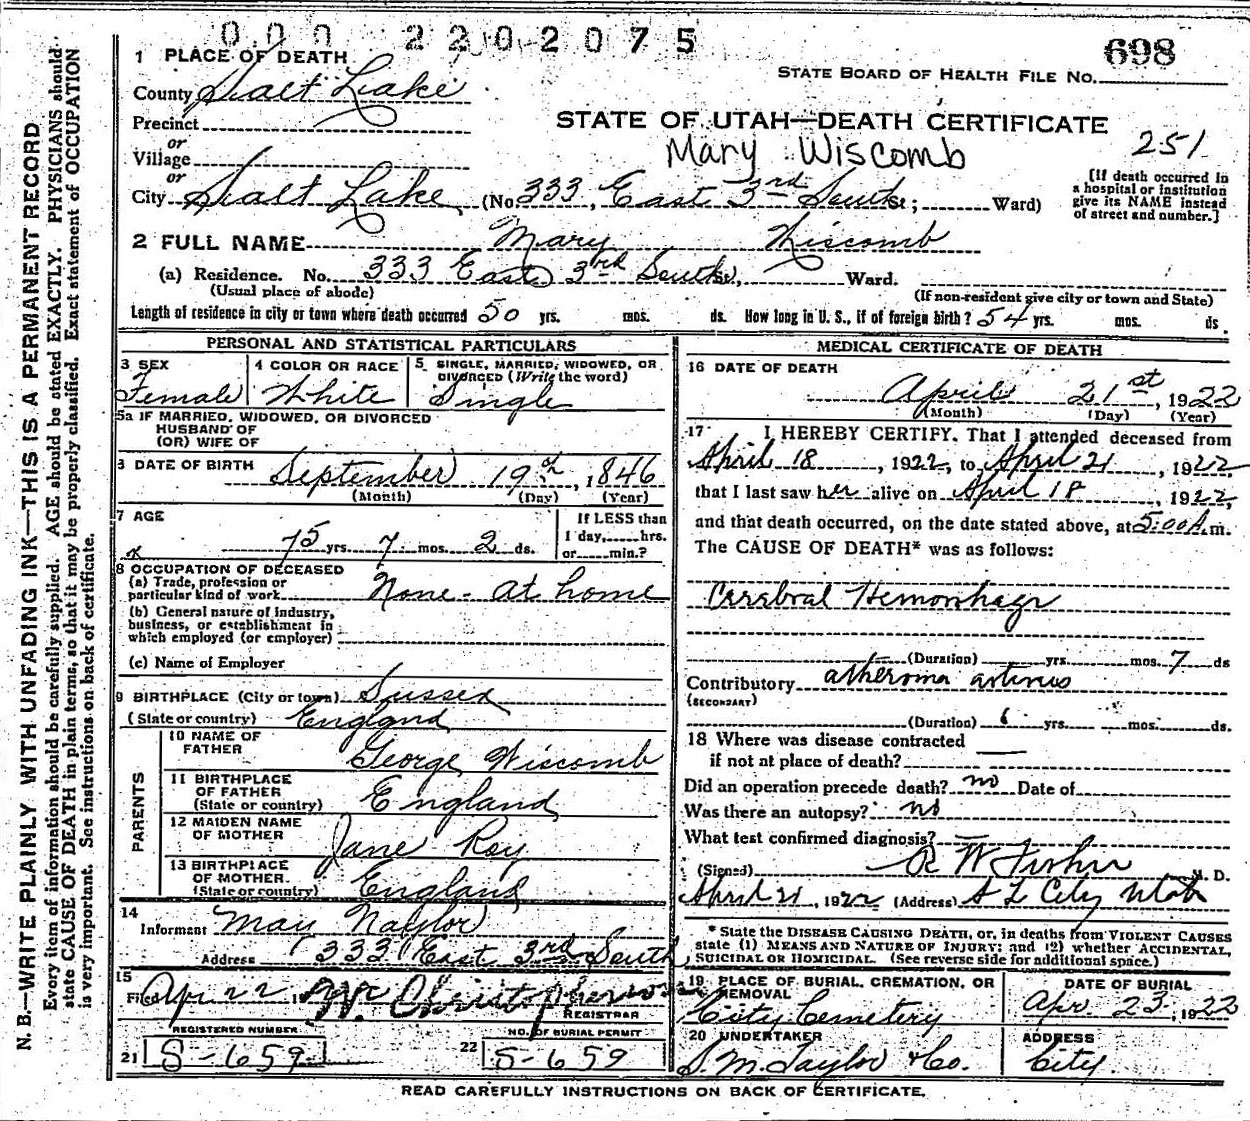 000 2202075
698
1 PLACE OF DEATH
STATE BOARD OF HEALTH FILE NO.
County Salt Lake
Precinct
or
Village
or
City Salt Lake (No. 333, East 3rd South St; Ward)
STATE OF UTAH—DEATH CERTIFICATE
Mary Wiscomb
251
[If death occurred in
a hospital or institution
give its NAME instead
of street and number.]
2 FULL NAME Mary Wiscomb
(a) Residence. No. 333 East 3rd South St., Ward.
(Usual place of abode)
(If non-resident give city or town and State)
Length of residence in city or town where death occurred 50 yrs. mos. ds. How long in U. S., if of foreign birth? 54 yrs. mos. ds.
PERSONAL AND STATISTICAL PARTICULARS
3 SEX
Female
4 COLOR OR RACE
White
5 SINGLE, MARRIED, WIDOWED, OR
DIVORCED (Write the word)
Single
5a IF MARRIED, WIDOWED, OR DIVORCED
HUSBAND OF
(OR) WIFE OF
DATE OF BIRTH September 19th, 1846
(Month) (Day) (Year)
7 AGE
75 yrs. 7 mos. 2 ds.
If LESS than
1 day, hrs.
or min.?
8 OCCUPATION OF DECEASED
(a) Trade, profession or
particular kind of work None - At home
(b) General nature of industry,
business, or establishment in
which employed (or employer)
(c) Name of Employer
9 BIRTHPLACE (City or town) Sussex
(State or country) England
PARENTS
10 NAME OF
FATHER George Wiscomb
11 BIRTHPLACE
OF FATHER
(State or country) England
12 MAIDEN NAME
OF MOTHER Jane Roy
13 BIRTHPLACE
OF MOTHER
(State or country) England
14
Informant May Naylor
Address 333 East 3rd South
15
Filed Apr 22 W. Christopherson
REGISTRAR
REGISTERED NUMBER
21 S-659
NO. OF BURIAL PERMIT
22 S-659
MEDICAL CERTIFICATE OF DEATH
16 DATE OF DEATH
April 21st, 1922
(Month) (Day) (Year)
17 I HEREBY CERTIFY, That I attended deceased from
April 18, 1922, to April 21, 1922
that I last saw her alive on April 18, 1922,
and that death occurred, on the date stated above, at 5:00 A.m.
The CAUSE OF DEATH* was as follows:
Cerebral Hemorrhage
(Duration) yrs. mos. 7 ds
Contributory atheroma arteries
(SECONDARY)
(Duration) yrs. mos. ds.
18 Where was disease contracted
if not at place of death?
Did an operation precede death? no Date of
Was there an autopsy? no
What test confirmed diagnosis?
(Signed) R W M. D.
April 21, 1922 (Address) S L City Utah
* State the DISEASE CAUSING DEATH, or, in deaths from VIOLENT CAUSES
state (1) MEANS AND NATURE OF INJURY; and (2) whether ACCIDENTAL,
SUICIDAL OR HOMICIDAL. (See reverse side for additional space.)
19 PLACE OF BURIAL, CREMATION, OR
REMOVAL
City Cemetery
DATE OF BURIAL
Apr. 23, 1922
20 UNDERTAKER
S. M. Taylor & Co.
ADDRESS
City
READ CAREFULLY INSTRUCTIONS ON BACK OF CERTIFICATE.
N. B.—WRITE PLAINLY WITH UNFADING INK—THIS IS A PERMANENT RECORD
Every item of information should be carefully supplied. AGE should be stated EXACTLY. PHYSICIANS should
state CAUSE OF DEATH in plain terms, so that it may be properly classified. Exact statement of OCCUPATION
is very important. See instructions on back of certificate.